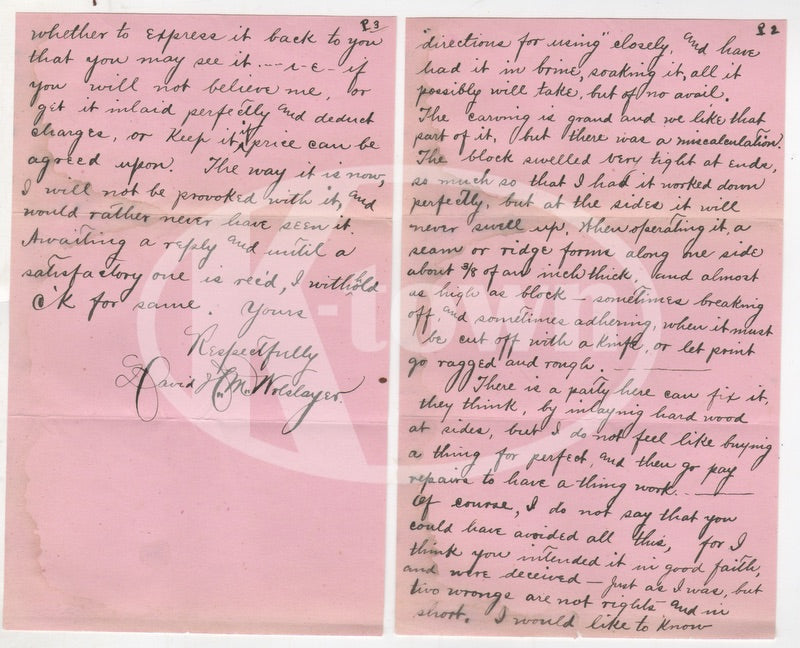 P 3
whether to express it back to you
that you may see it - - i - e - if
you will not believe me, or
get it inlaid perfectly and deduct
charges, or keep it, if price can be
agreed upon. The way it is now,
I will not be provoked with it, and
would rather never have seen it.
Awaiting a reply and until a
satisfactory one is rec'd, I withhold
c'k for same. Yours
Respectfully
David H. M. Wolslayer.
P 2
"directions for using" closely, and have
had it in brine, soaking it, all it
possibly will take, but of no avail.
The carving is grand and we like that
part of it, but there was a miscalculation.
The block swelled very tight at ends,
so much so that I had it worked down
perfectly, but at the sides it will
never swell up. When operating it, a
seam or ridge forms along one side
about 3/8 of an inch thick, and almost
as high as block - sometimes breaking
off, and sometimes adhering, when it must
be cut off with a knife, or let print
go ragged and rough.
There is a party here can fix it,
they think, by inlaying hard wood
at sides, but I do not feel like buying
a thing for perfect, and then go pay
repairs to have a thing work.
Of course, I do not say that you
could have avoided all this, for I
think you intended it in good faith,
and were deceived - just as I was, but
two wrongs are not rights and in
short. I would like to know
K-town